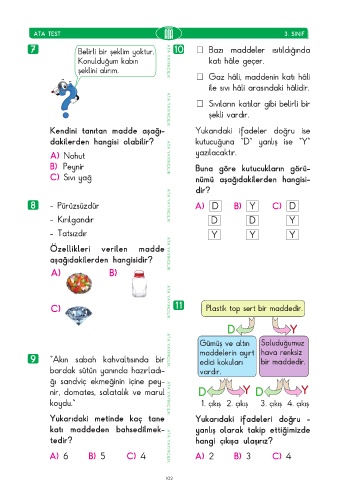 ATA TEST
3. SINIF
7
Belirli bir şeklim yoktur.
Konulduğum kabın
şeklini alırım.
Kendini tanıtan madde aşağı-
dakilerden hangisi olabilir?
A) Nohut
B) Peynir
C) Sıvı yağ
8
- Pürüzsüzdür
- Kırılgandır
- Tatsızdır
Özellikleri verilen madde
aşağıdakilerden hangisidir?
A)
B)
C)
9
"Akın sabah kahvaltısında bir
bardak sütün yanında hazırladı-
ğı sandviç ekmeğinin içine pey-
nir, domates, salatalık ve marul
koydu."
Yukarıdaki metinde kaç tane
katı maddeden bahsedilmek-
tedir?
A) 6 B) 5 C) 4
ATA YAYINCILIK
ATA YAYINCILIK
ATA YAYINCILIK
ATA YAYINCILIK
ATA YAYINCILIK
ATA YAYINCILIK
ATA YAYINCILIK
ATA YAYINCILIK
ATA YAYINCILIK
10
Bazı maddeler ısıtıldığında
katı hâle geçer.
Gaz hâli, maddenin katı hâli
ile sıvı hâli arasındaki hâlidir.
Sıvıların katılar gibi belirli bir
şekli vardır.
Yukarıdaki ifadeler doğru ise
kutucuğuna "D" yanlış ise "Y"
yazılacaktır.
Buna göre kutucukların görü-
nümü aşağıdakilerden hangisi-
dir?
A) D B) Y C) D
D D Y
Y Y Y
11
Plastik top sert bir maddedir.
D Y
Gümüş ve altın
maddelerin ayırt
edici kokuları
vardır.
Soluduğumuz
hava renksiz
bir maddedir.
D Y D Y
1. çıkış 2. çıkış 3. çıkış 4. çıkış
Yukarıdaki ifadeleri doğru -
yanlış olarak takip ettiğimizde
hangi çıkışa ulaşırız?
A) 2 B) 3 C) 4
102